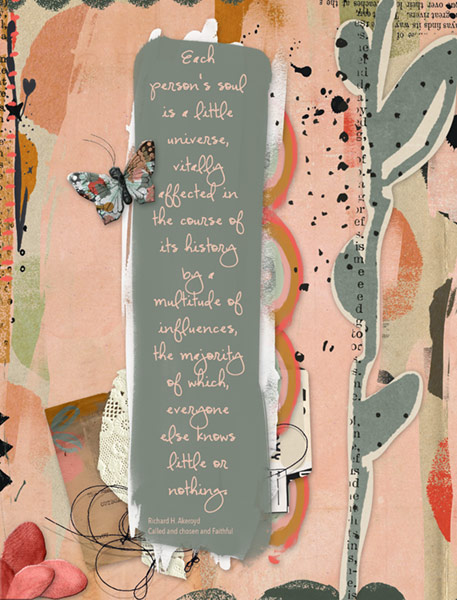 Each
person's soul
is a little
universe,
vitally
affected in
the course of
its history
by a
multitude of
influences,
the majority
of which,
everyone
else knows
little or
nothing.
Richard H. Akeroyd
Called and chosen and Faithful